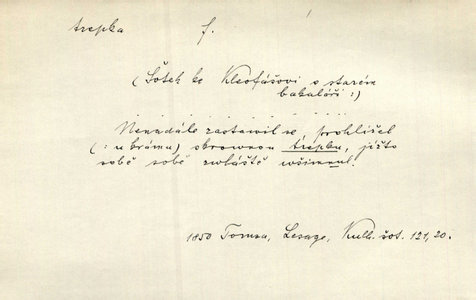 trepka f.
(Šotek ke Kleofášovi o starém
bakaláři :)
. . . . . . . . . . . .
Nenadále zastavil se, prohlížel
(: u brámu) obrovnou třepku, jížto
sobě sobě zvláště všimnul.
1850 Tomsa, Lesage, Kulh. šot. 121, 20.